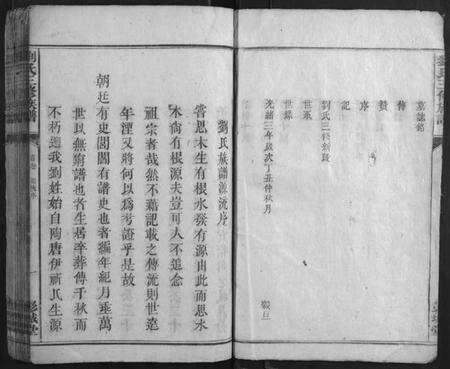 墓誌銘
傳
贊
序
記
劉氏二修族譜
世系
世錄
光緒三年歲次丁丑仲秋月
劉氏族譜源流序
嘗思木生有根水發有源由此而思水
木尚有根源夫豈可人不追念
祖宗者哉然不藉記載之傳流則世遠
年湮又將何以為考證乎是故
朝廷有史閭閻有譜史也者編年紀月垂萬
世以無窮譜也者生居卒葬傳千秋而
不朽迺我劉姓始自陶唐伊祈氏生源
劉氏二修族譜
彭城堂